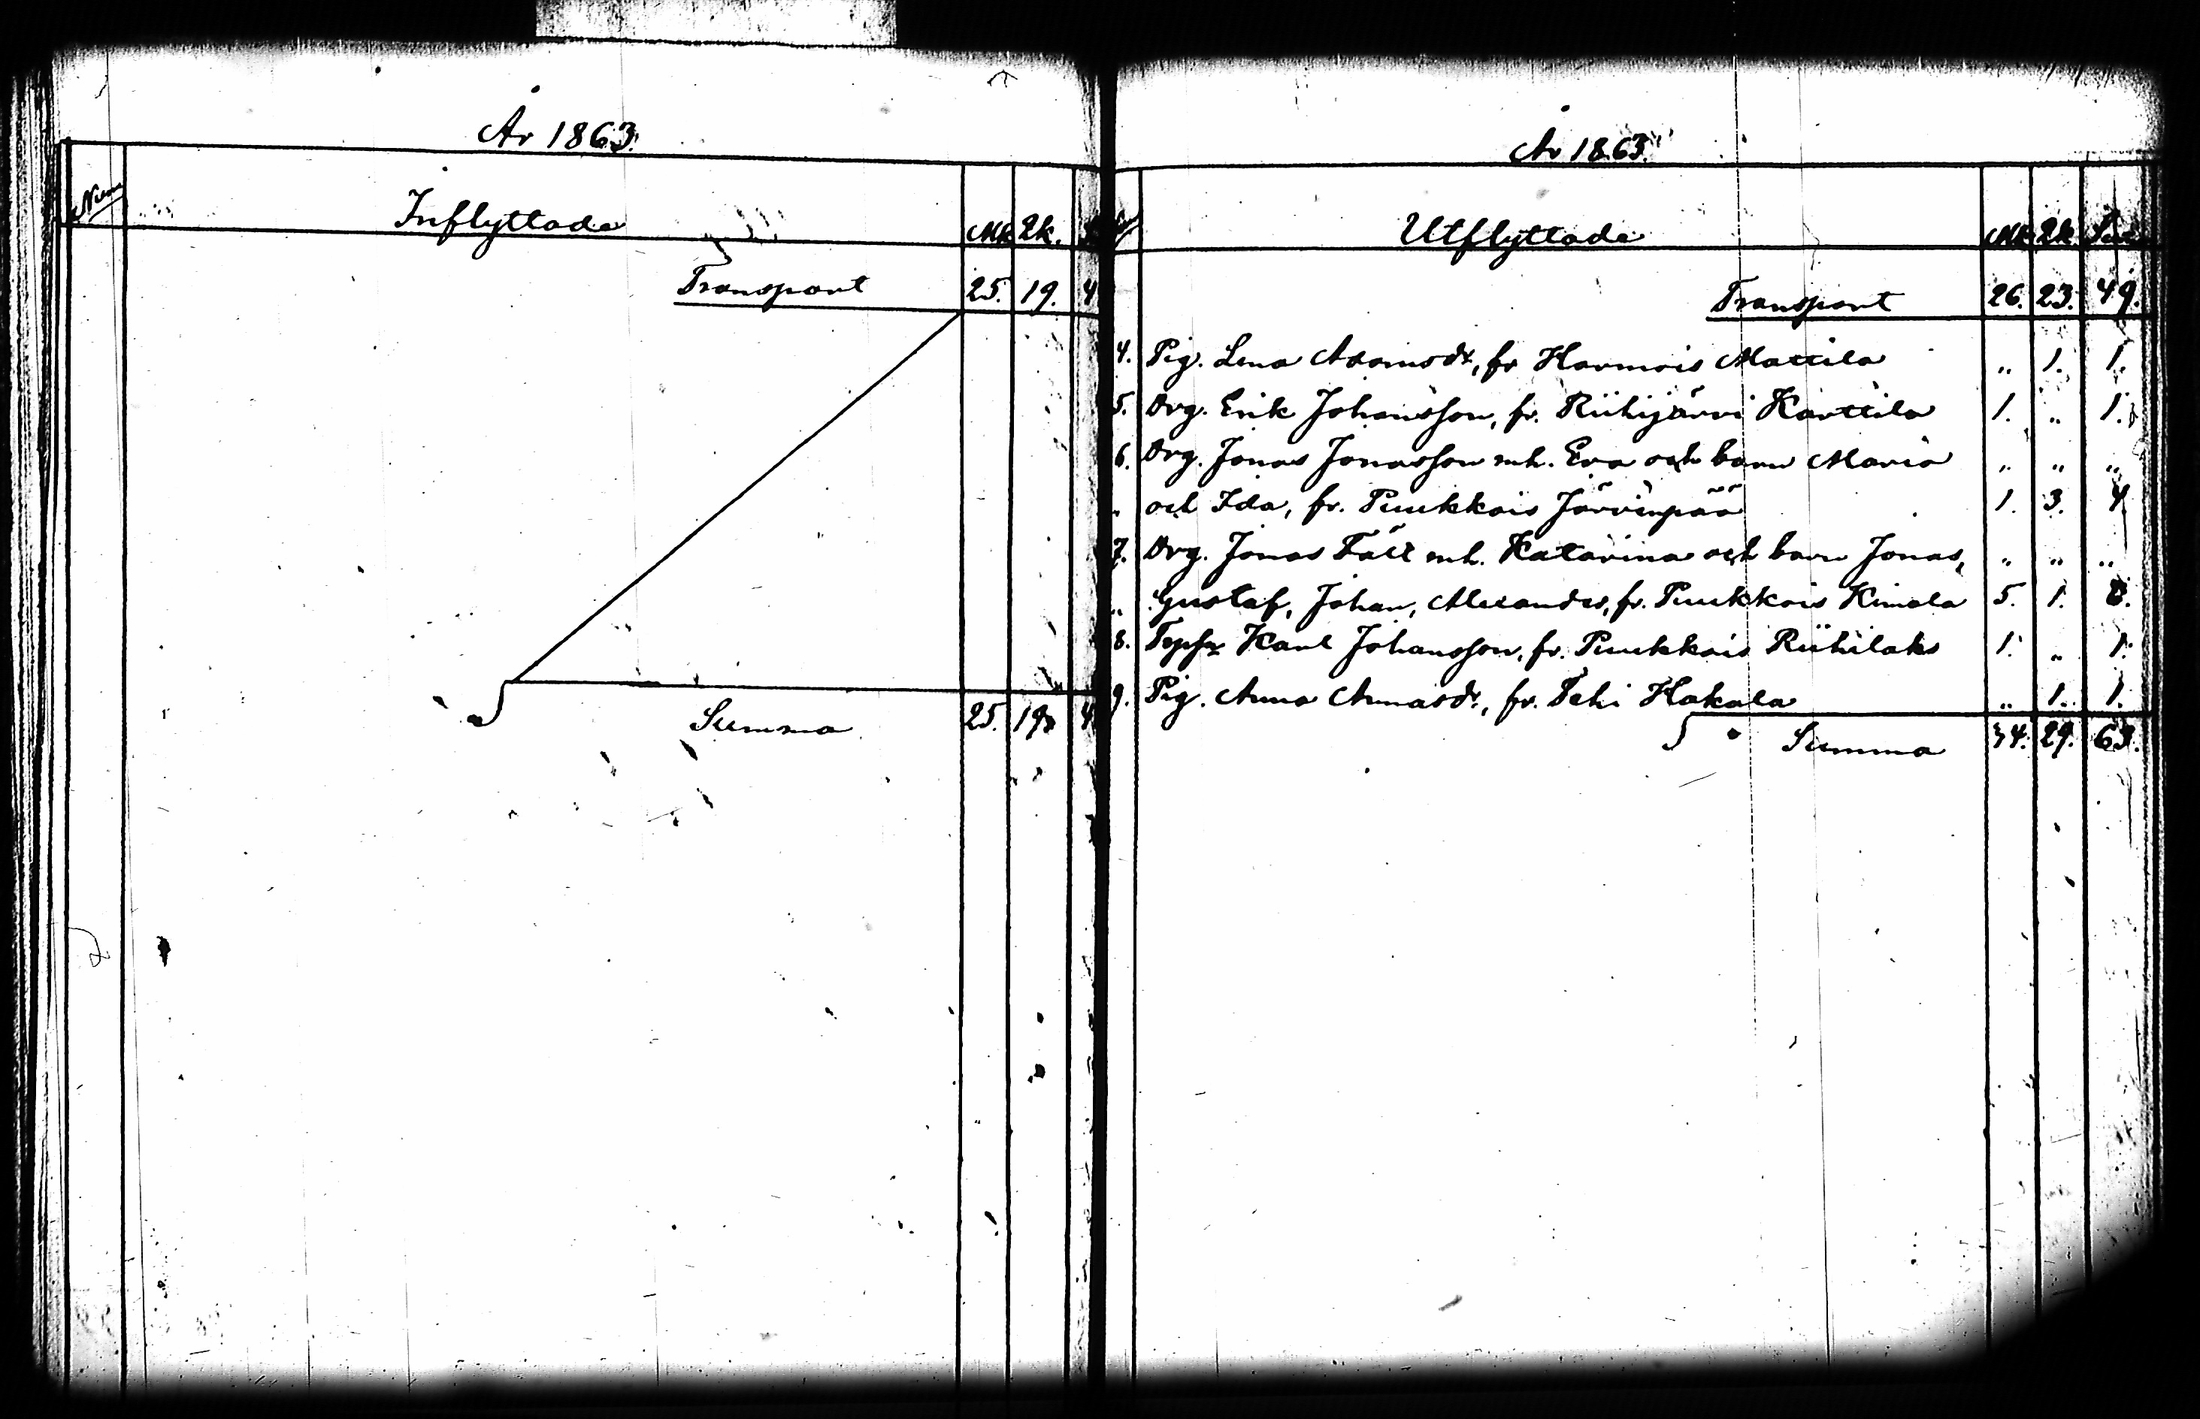 År 1863.
Num
Inflyttade
Mk 2k.
Transport 25. 19. 4
Summa 25. 19. 4
År 1863.
Utflyttade
Mk 2k
Transport 26. 23. 49.
4. Pig. Lena Adamsdr, fr Harmois Mattila „ 1. 1.
5. Drg. Erik Johansson, fr. Riihijärvi Karttila 1. „ 1.
6. Drg. Jonas Jonasson mh. Eva och barn Maria „ „ „
„ och Ida, fr. Puukkois Järvenpää 1. 3. 4
7. Drg. Jonas Fält mh. Katarina och barn Jonas, „ „ „
„ Gustaf, Johan, Alexander, fr. Puukkois Kimola 5. 1. 6.
8. Karl Johansson, fr. Puukkois Riihilaks 1. „ 1.
9. Pig. Anna Annasdr, fr. Pehi Hakala „ 1. 1.
Summa 34. 29. 63.